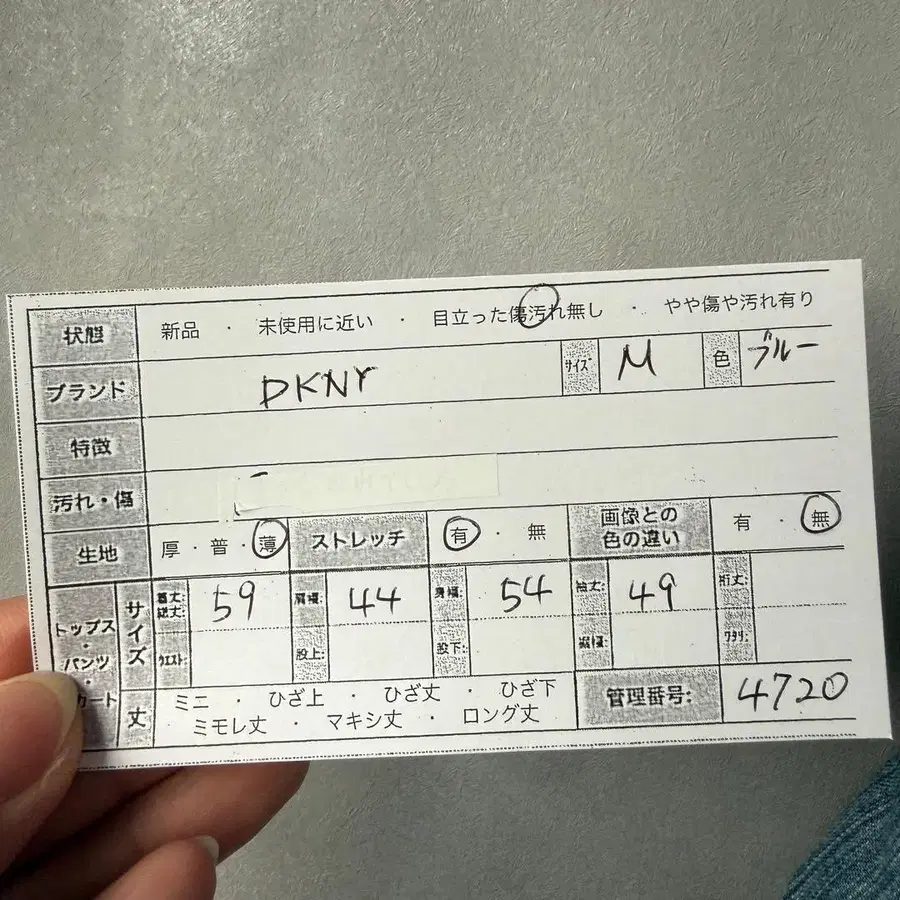 状態 新品 ・ 未使用に近い ・ 目立った傷汚れ無し ・ やや傷や汚れ有り
ブランド DKNY サイズ M 色 ブルー
特徴
汚れ・傷
生地 厚・普・薄 ストレッチ 有・無 画像との色の違い 有・無
トップス・パンツ・ カート サイズ 着丈:総丈: 59 肩幅: 44 身幅: 54 袖丈: 49 裄丈:
ウエスト: 股上: 股下: 裾幅: ワタリ:
丈 ミニ ・ ひざ上 ・ ひざ丈 ・ ひざ下
ミモレ丈 ・ マキシ丈 ・ ロング丈
管理番号: 4720